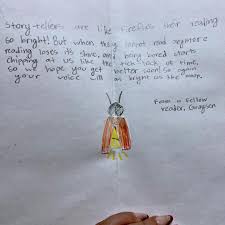 Story-tellers are like fireflies their reading
so bright! But when they cannot read anymore
reading loses it's shine, and being bored starts
chipping at us like the tick tock of time,
so we hope you get better soon! So again
your voice will as bright as the moon.
From a fellow
reader, Greysen